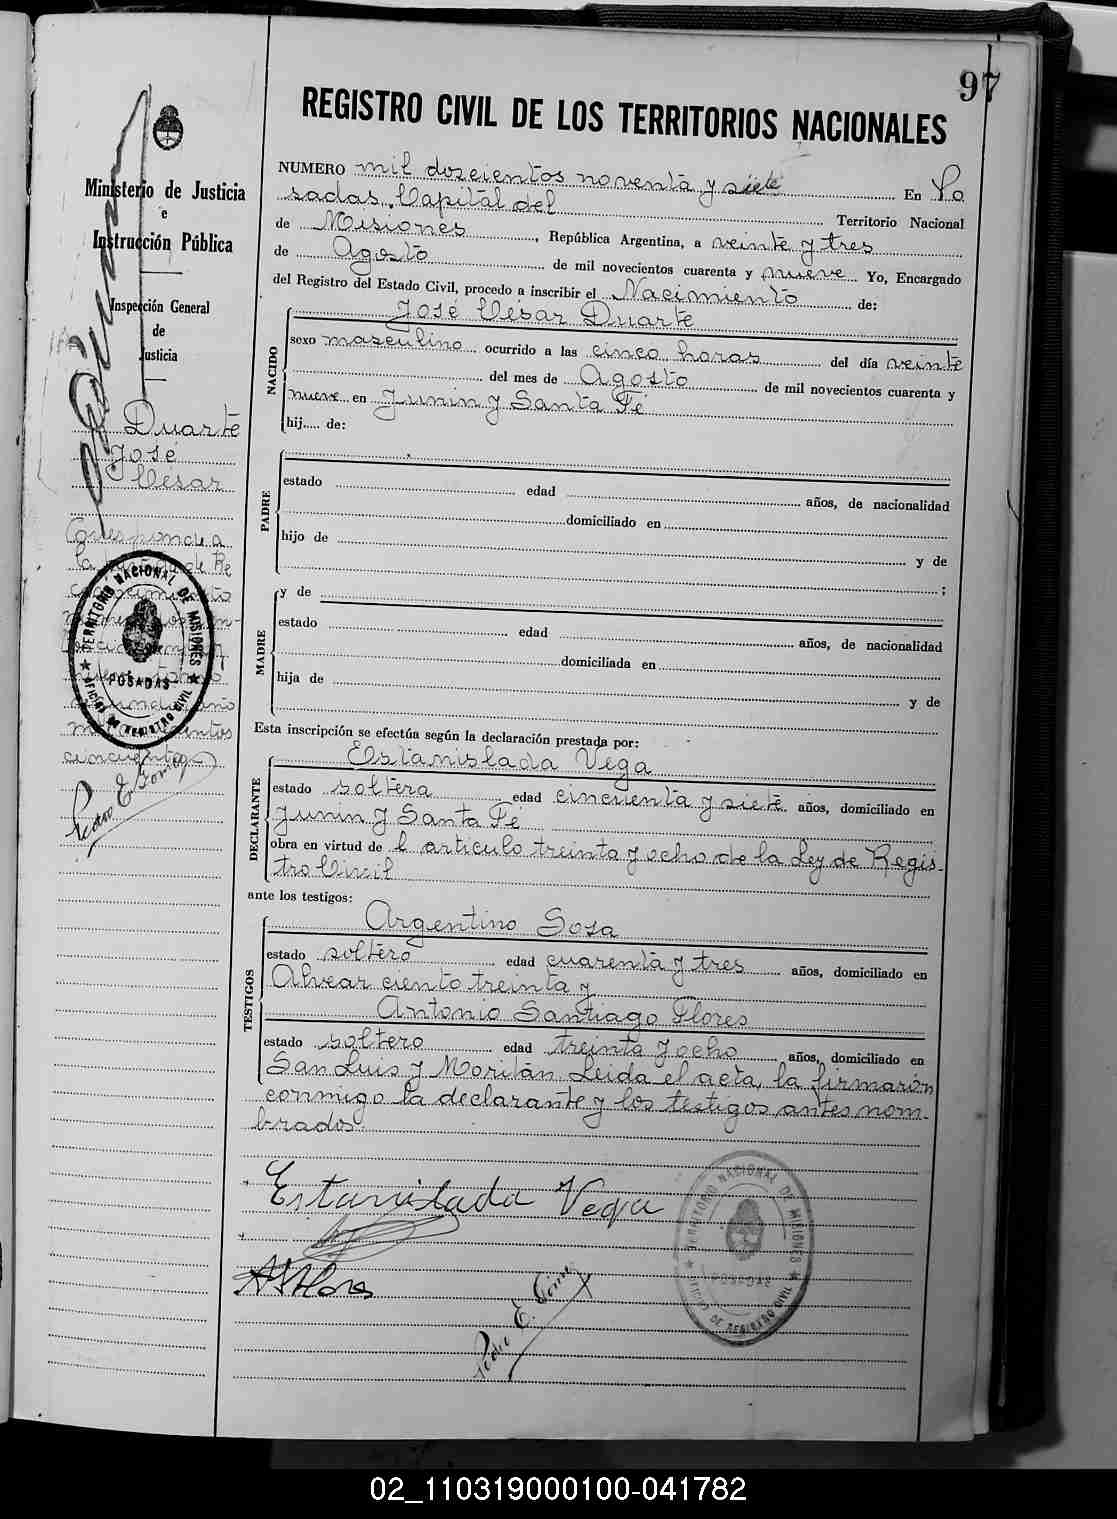 97
REGISTRO CIVIL DE LOS TERRITORIOS NACIONALES
Ministerio de Justicia
e
Instrucción Pública
Inspección General
de
Justicia
Duarte
José
César
Corresponde a
TERRITORIO NACIONAL DE MISIONES
POSADAS
OFICINA DE REGISTRO CIVIL
cincuenta
Pedro E. Gomez
NUMERO mil doscientos noventa y siete En Po
sadas, Capital del Territorio Nacional
de Misiones, República Argentina, a veinte y tres
de Agosto de mil novecientos cuarenta y nueve Yo, Encargado
del Registro del Estado Civil, procedo a inscribir el Nacimiento de:
NACIDO
José César Duarte
sexo masculino ocurrido a las cinco horas del día veinte
del mes de Agosto de mil novecientos cuarenta y
nueve en Junin y Santa Fé
hij..... de:
PADRE
estado edad años, de nacionalidad
domiciliado en
hijo de y de
;
MADRE
y de
estado edad años, de nacionalidad
domiciliada en
hija de y de
Esta inscripción se efectúa según la declaración prestada por:
DECLARANTE
Estanislada Vega
estado soltera edad cincuenta y siete años, domiciliado en
Junin y Santa Fé
obra en virtud de l articulo treinta y ocho de la Ley de Regis-
tro Civil
ante los testigos:
TESTIGOS
Argentino Sosa
estado soltero edad cuarenta y tres años, domiciliado en
Alvear ciento treinta y
Antonio Santiago Flores
estado soltero edad treinta y ocho años, domiciliado en
San Luis y Moritán Leida el acta, la firmaron
conmigo la declarante y los testigos antes nom-
brados.
Estanislada Vega
TERRITORIO NACIONAL DE MISIONES
POSADAS
OFICINA DE REGISTRO CIVIL
Pedro E. Gomez
02_110319000100-041782